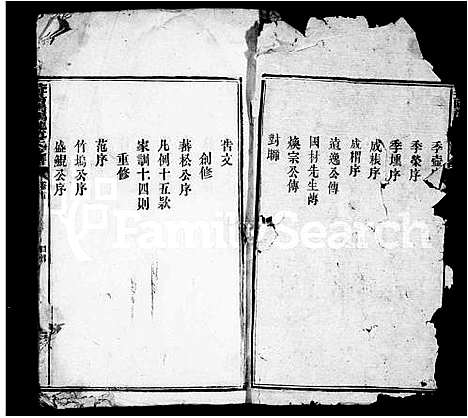 季壺序
季榮序
季壎序
成棖序
成榴序
遠逸公傳
因材先生傳
煥宗公傳
對聯
告文
創修
菾松公序
凡例十五款
家訓十四則
重修
范序
竹塢公序
盛覲公序
FamilySearch